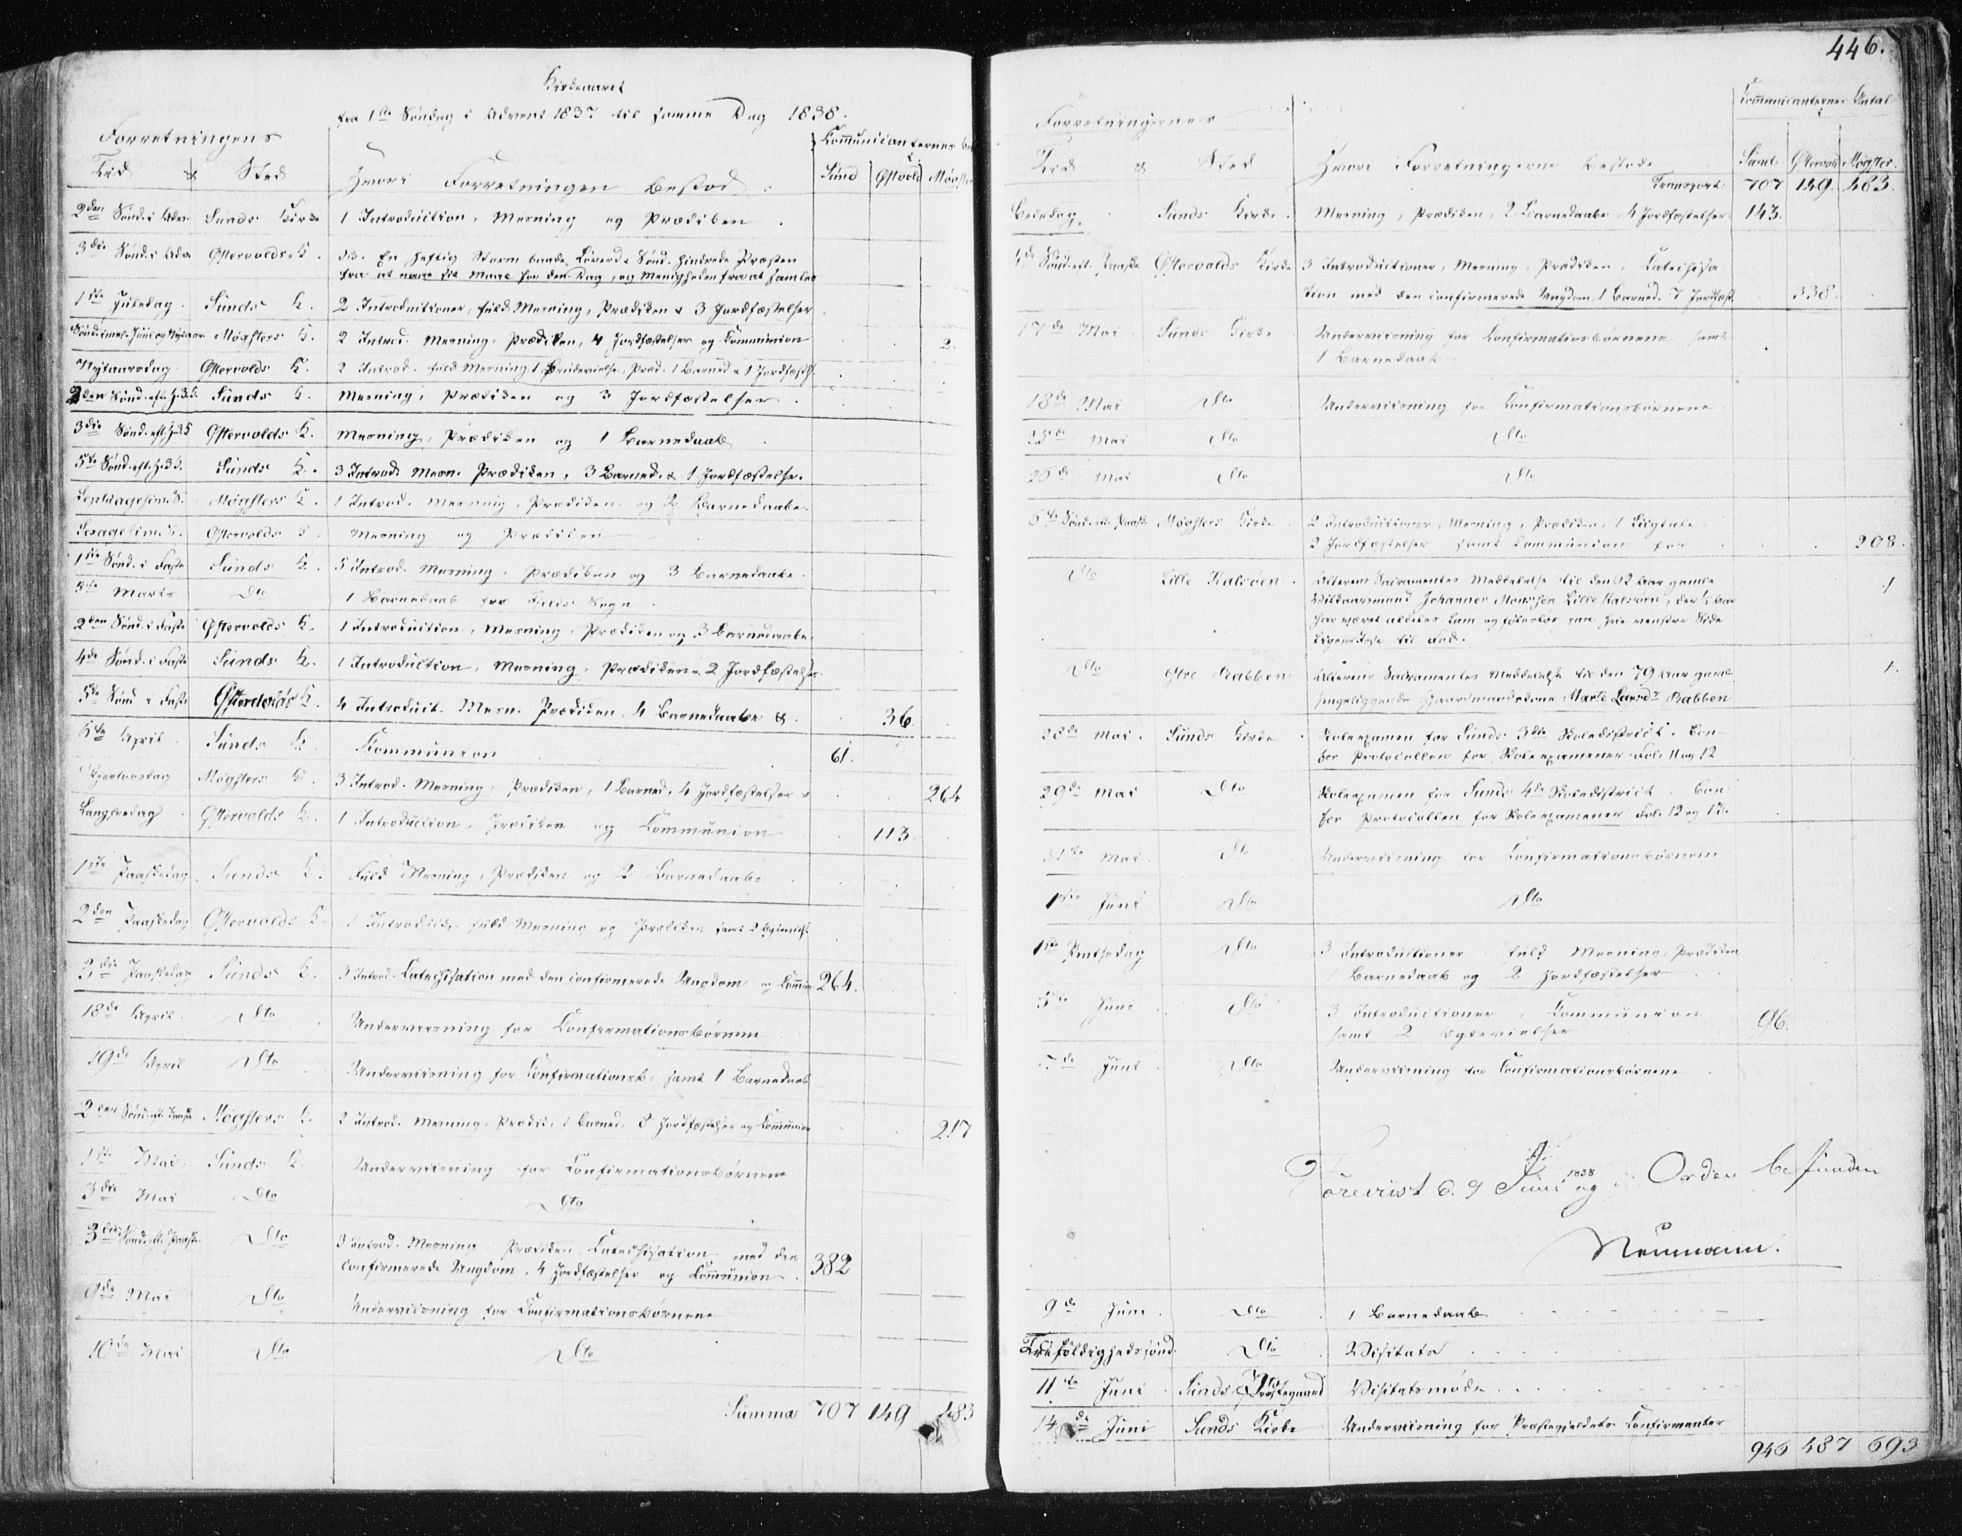 Kirkeaaret
fra 1ste Søndag i Advent 1837 til samme Dag 1838.
Forretningens
Communicanternes
Tid & Sted Hvori Forretningen bestod: Sund Østvold Møgster
2den Sønd. i Adv. Sunds Kirke 1 Introduction, Messning og Prædiken
3die Sønd. i Adv. Østervolds K. NB. En heftig Storm baade Løverd. & Sønd. hindrede Præsten
fra at naae til Messe for den Dag, og Menigheden fra at samles
1ste Juledag Sunds K. 2 Introductioner, fuld Messning, Prædiken & 3 Jordfæstelser
Sønd. imel. Juul og Nytaar Møgsters K. 2 Introd. Messning, Prædiken, 4 Jordfæstelser og Communion 2.
Nytaarsdag Østervolds K. 2 Introd. fuld Messning, 1 Præd. 1 Barned. & 1 Jordfæst.
2den Sønd. eft. H.3.K. Sunds K. Messning, Prædiken og 3 Jordfæstelser
3die Sønd. eft. H.3.K. Østervolds K. Messning, Prædiken og 1 Barnedaab
5te Sønd. eft. H.3.K. Sunds K. 3 Introd. Messn. Prædiken, 3 Barned. & 1 Jordfæstelse.
Septuagesim. S. Møgsters K. 1 Introd. Messning, Prædiken og 2 Barnedaabe.
Sexagesim. S. Østervolds K. Messning og Prædiken
1ste Sønd. i Faste Sunds K. 5 Introd. Messning, Prædiken og 3 Barnedaabe.
5te Marts Dto 1 Barnedaab fra Fjelds Sogn
2den Sønd. i Faste Østervolds K. 1 Introduction, Messning, Prædiken og 3 Barnedaabe.
4de Sønd. i Faste Sunds K. 1 Introduction, Messning, Prædiken & 2 Jordfæstelser
5te Sønd. i Faste Østervolds K. 4 Introduct. Messn. Prædiken, 4 Barnedaabe & 36.
6te April Sunds K. Communion 61.
Skjertorsdag Møgsters K. 3 Introd. Messning, Prædiken, 1 Barned. 4 Jordfæstelser & 264
Langfredag Østervolds K. 1 Introduction, Prædiken og Communion 113.
1ste Paaskedag Sunds K. Fuld Messning, Prædiken og 2 Barnedaabe
2den Paaskedag Østervolds K. 1 Introduct. fuld Messning og Prædiken samt 2
3die Paaskedag Sunds K. 3 Introd. Catechisation med den confirmerede Ungdom og Commun. 264.
18de April Dto Underviisning for Confirmationsbørnene
19de April Dto Underviisning for Confirmationsb. samt 1 Barnedaab
2den Sønd. eft. Paaske Møgsters K. 2 Introd. Messning, Prædik. 1 Barned. 8 Jordfæstelser og Communion 217
1ste Mai Sunds K. Underviisning for Confirmationsbørnene
3die Mai Dto Dto
3die Sønd. eft. Paaske Dto 3 Introd. Messning, Prædiken, Catechisation med den
confirmerede Ungdom, 4 Jordfæstelser og Communion 382
9de Mai Dto Underviisning for Confirmationsbørnene
10de Mai Dto Dto
Summa 707 149 483
446.
Forretningernes Communicanternes Antal
Tid & Sted Hvori Forretningerne bestode Sund Østervold Møgster.
Transport 707 149. 483.
Bededag. Sunds Kirke. Messning, Prædiken, 2 Barnedaabe, 4 Jordfæstelser 143.
4de Sønd. eft. Paaske Østervolds Kirke 3 Introductioner, Messning, Prædiken, Catechisa
tion med den confirmerede Ungdom, 1 Barned. 7 Jordfæst. 338.
17de Mai Sunds Kirke Underviisning for Confirmationsbørnene samt
1 Barnedaab
18de Mai Dto Underviisning for Confirmationsbørnene
25de Mai Dto Dto
26de Mai Dto Dto
6te Sønd. eft. Paaske Møgsters Kirke 2 Introductioner, Messning, Prædiken, 1
2 Jordfæstelser samt Communion for 208.
Dto Lille Kalsøen. Alterens Sacramentes Meddelelse til den 62 Aar gamle
Johannes Monssen Lille Kalsøen, der
har været lam og paa hele venstre Side
til Død. 1
Dto Øvre Rabben Alterens Sacramentes Meddelelse til den 79 Aar gaml.
sengeliggende Gaardmandsekone Marte Larsdr. Rabben 1.
28de Mai Sunds Kirke Skoleexamen for Sunds 3die Skoledistrict. Con-
fer Protocollen for Skoleexamener Fol: 11 og 12
29de Mai Dto Skoleexamen for Sunds 4de Skoledistrict. Con-
fer Protocollen for Skoleexamener Fol: 12 og 13.
31te Mai Dto Underviisning for Confirmationsbørnene
1ste Juni Dto Dto
1ste Pintsedag Dto 3 Introductioner, fuld Messning, Prædiken
1 Barnedaab og 2 Jordfæstelser
5te Juni Dto 3 Introductioner, Communion
samt 2 Ægtevielser 96.
7de Juni Dto Underviisning for Confirmationsbørnene
Foreviist d. 9 Juni 1838 og i Orden befunden
Neumann.
9de Juni Dto 1 Barnedaab
Trefoldighedssønd. Dto Visitats
11te Juni Sunds Præstegaard Visitatsmøde
14de Juni Sunds Kirke Underviisning for Præstegjeldets Confirmanter
946 487 693